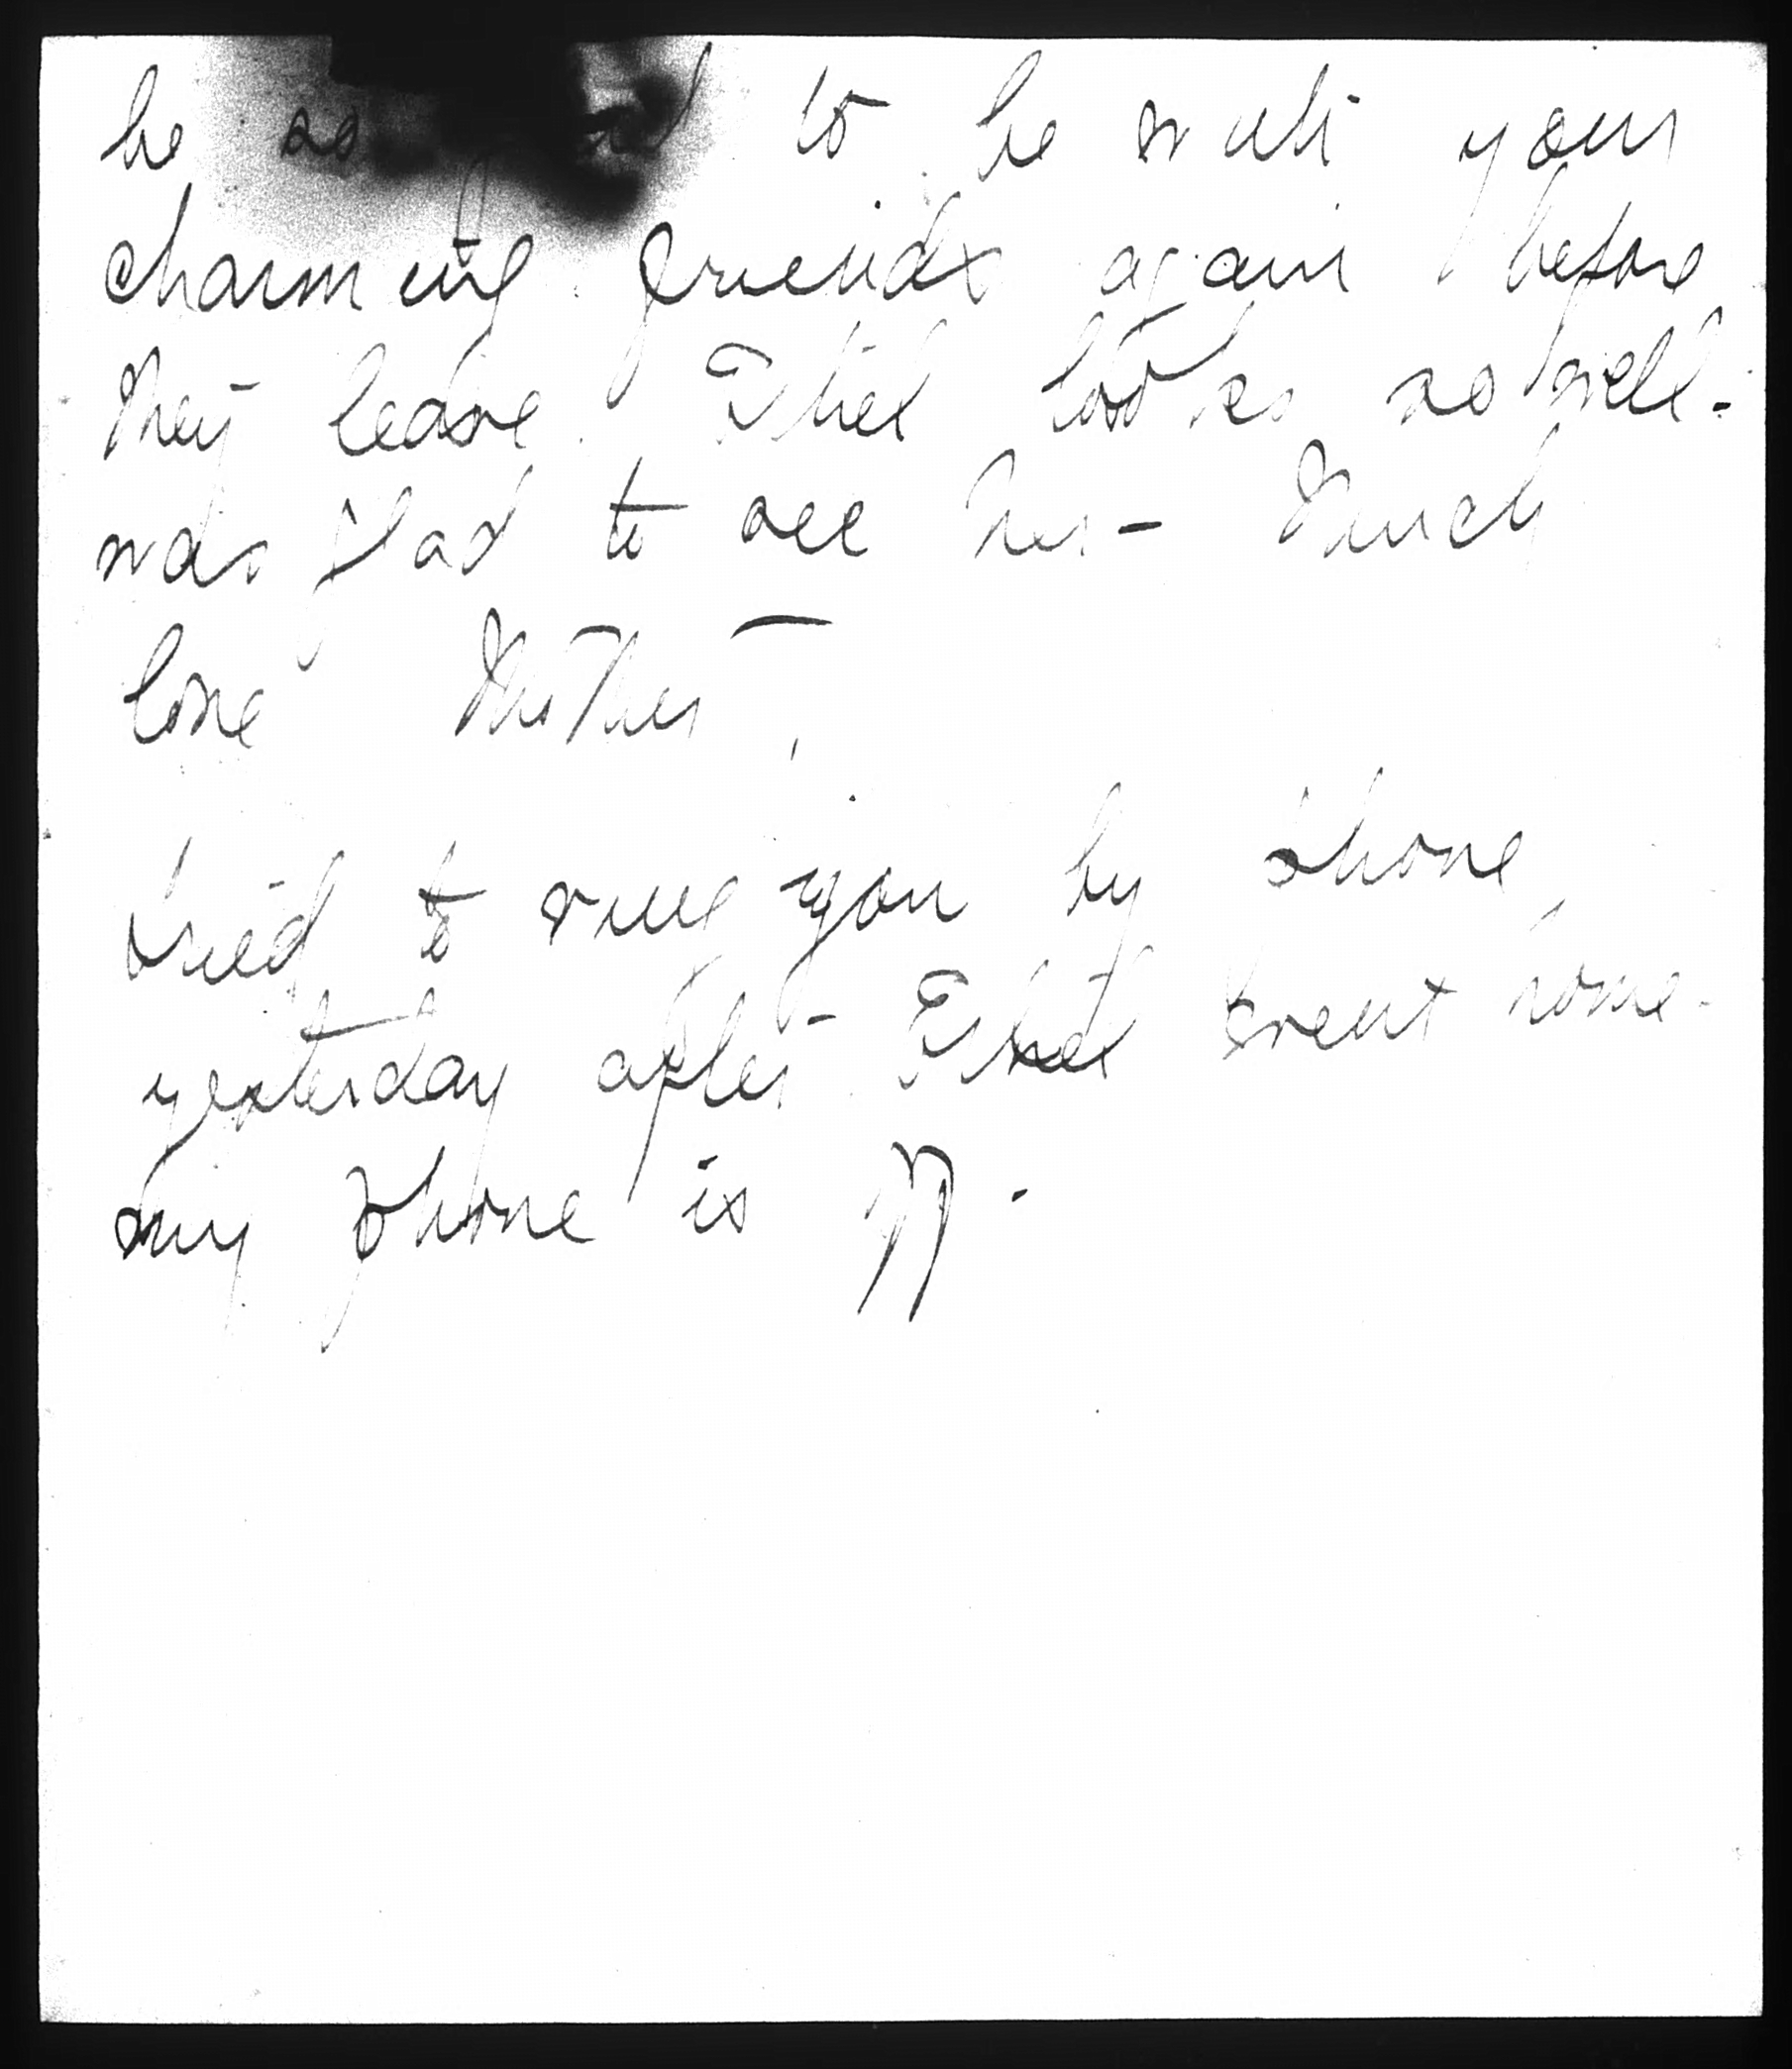 be so to be with your
charming friends again before
they leave. Ethel looks so well -
was glad to see her - Much
love Mother -
tried to ring you by phone
yesterday after Ethel went home -
my phone is 77.